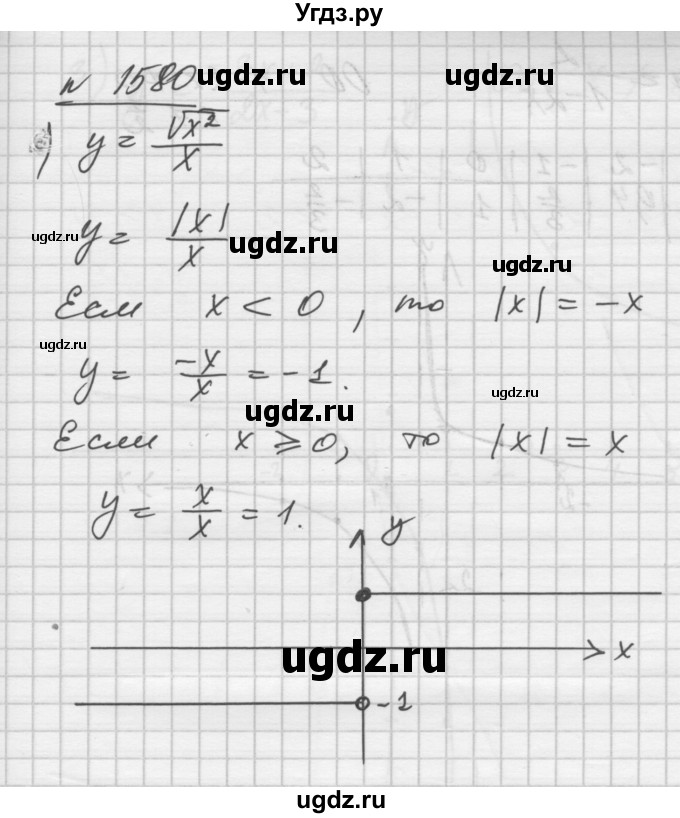 Угдз.ру
n 1580 ugdz.ru
) y = √x² / x
ugdz.ru y = |x| / x ugdz.ru
ugdz.ru
Если x < 0, то |x| = -x
ugdz.ru y = -x / x = -1.
ugdz.ru ugdz.ru
Если x ⩾ 0, то |x| = x
y = x / x = 1.
y
ugdz.ru x
-1
ugdz.ru